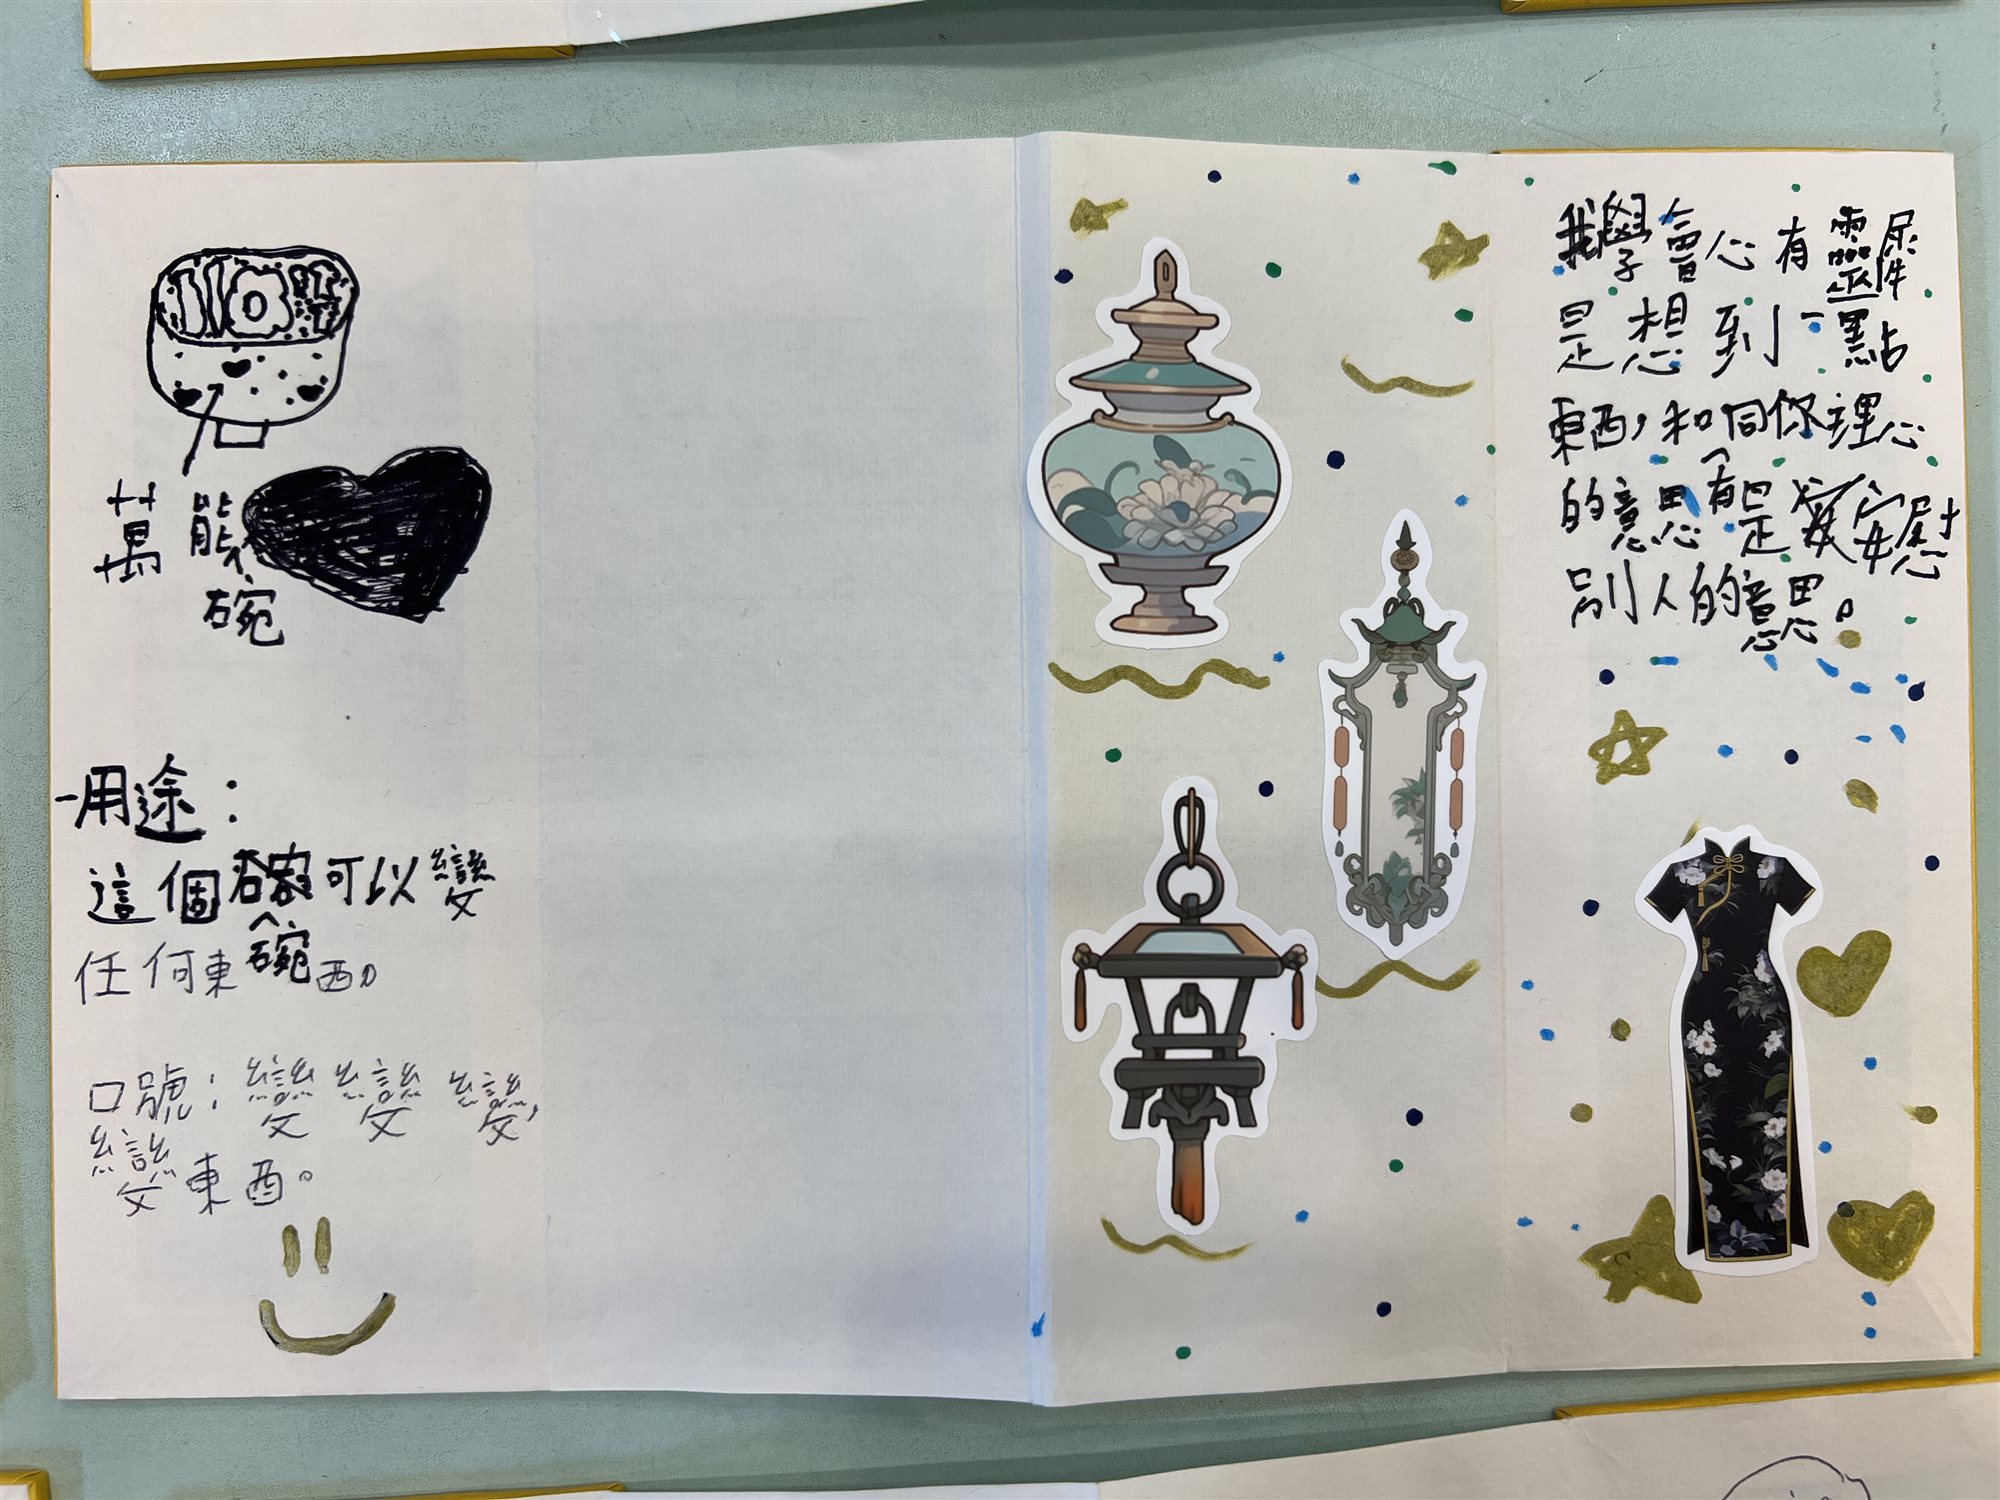 萬能
碗
用途：
這個可以變
碗
任何東西。
口號：變變變，
變東西。
我學會心有靈犀
是想到一點
東西，和同你理心
的意思有是安慰
別人的意思。